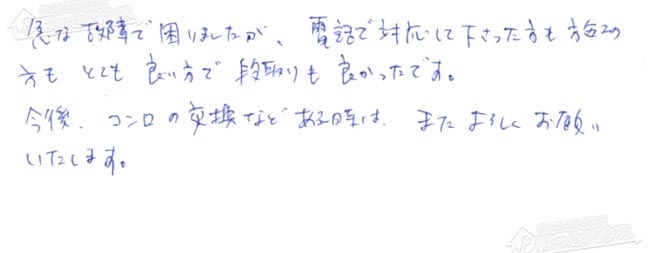 急な故障で困りましたが、電話で対応して下さった方も方施工の
方も とても 良い方で 段取りも 良かったです。
今後、コンロの交換など ある時は、また よろしく お願い
いたします。